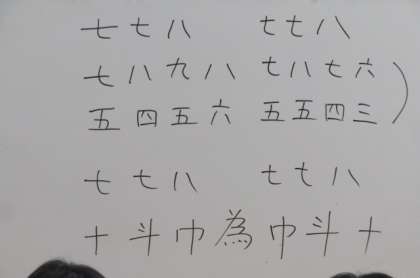 七七八 七七八
七八九八 七八七六
五四五六 五五四三
七七八 七七八
十斗巾為巾斗十